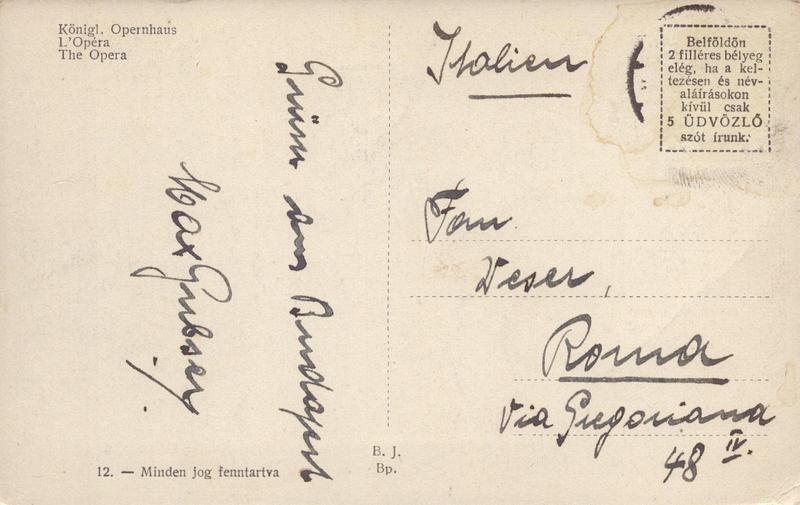 Königl. Opernhaus
L'Opéra
The Opera
Grüsse aus Budapest
Max Gubser
12. — Minden jog fenntartva
B. J.
Bp.
Italien
Belföldön
2 filléres bélyeg
elég, ha a kel-
tezésen és név-
aláírásokon
kívül csak
5 ÜDVÖZLŐ
szót írunk.
Frau
Weser,
Roma
Via Gregoriana
48 IV.